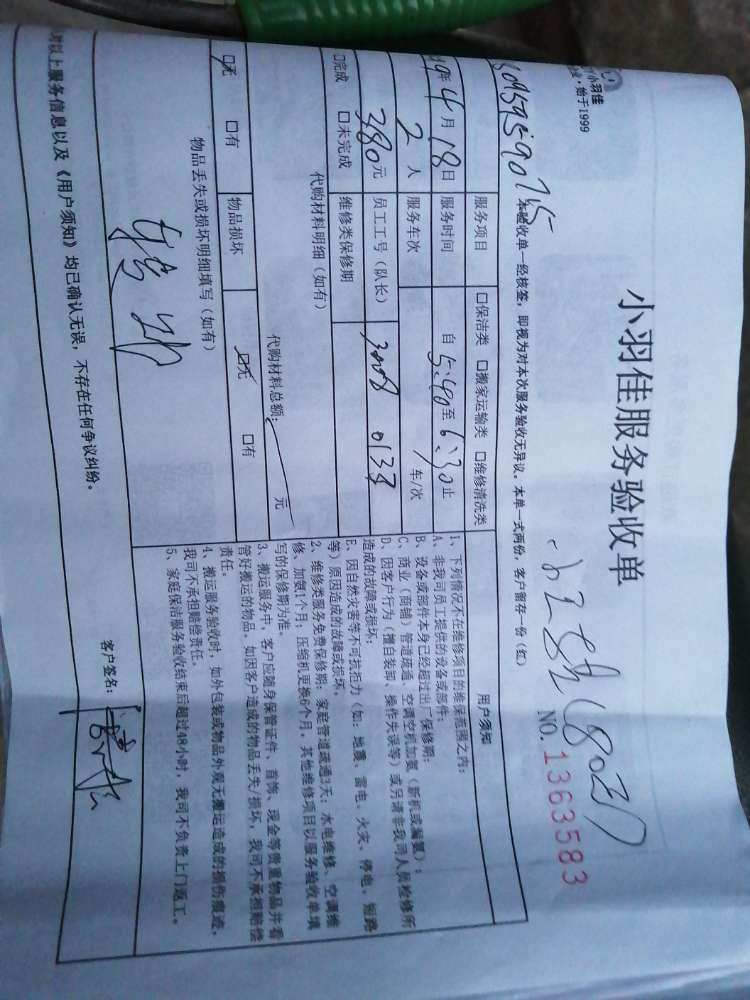 小羽佳
业·始于1999
小羽佳服务验收单
NO.1363583
本验收单一经核签，即视为对本次服务验收无异议。本单一式两份，客户留存一份（红）
服务项目 □保洁类 □搬家运输类 □维修清洗类
19年4月18日 服务时间 自5:40至6:30止
2人 服务车次 1车/次
380元 员工工号（队长）
□完成 □未完成 维修类保修期
代购材料明细（如有）
代购材料总额： 元
□无 □有 物品损坏 □无 □有
物品丢失或损坏明细填写（如有）
对以上服务信息以及《用户须知》均已确认无误，不存在任何争议纠纷。
客户签名：
用户须知
1、下列情况不在维修项目的维保范围之内：
A、非我司员工提供的设备或部件；
B、设备或部件本身已经超过出厂保修期；
C、商业（商铺）管道疏通、空调空机加氨（新机或漏氨）；
D、因客户行为（擅自装卸、操作失误等）或另请非我司人员检修所
造成的故障或损坏；
E、因自然灾害等不可抗拒力（如：地震、雷电、火灾、停电、短路
等）原因造成的故障或损坏。
2、维修类服务免费保修期：家庭管道疏通3天；水电维修、空调维
修、加氨1个月；压缩机更换6个月。其他维修项目以服务验收单填
写的保修期为准。
3、搬运服务中，客户应随身保管证件、首饰、现金等贵重物品并看
管好搬运的物品。如因客户造成的物品丢失/损坏，我司不承担赔偿
责任。
4、搬运服务验收时，如外包装或物品外观无搬运造成的损伤痕迹，
我司不承担赔偿责任。
5、家庭保洁服务验收结束后超过48小时，我司不负责上门返工。